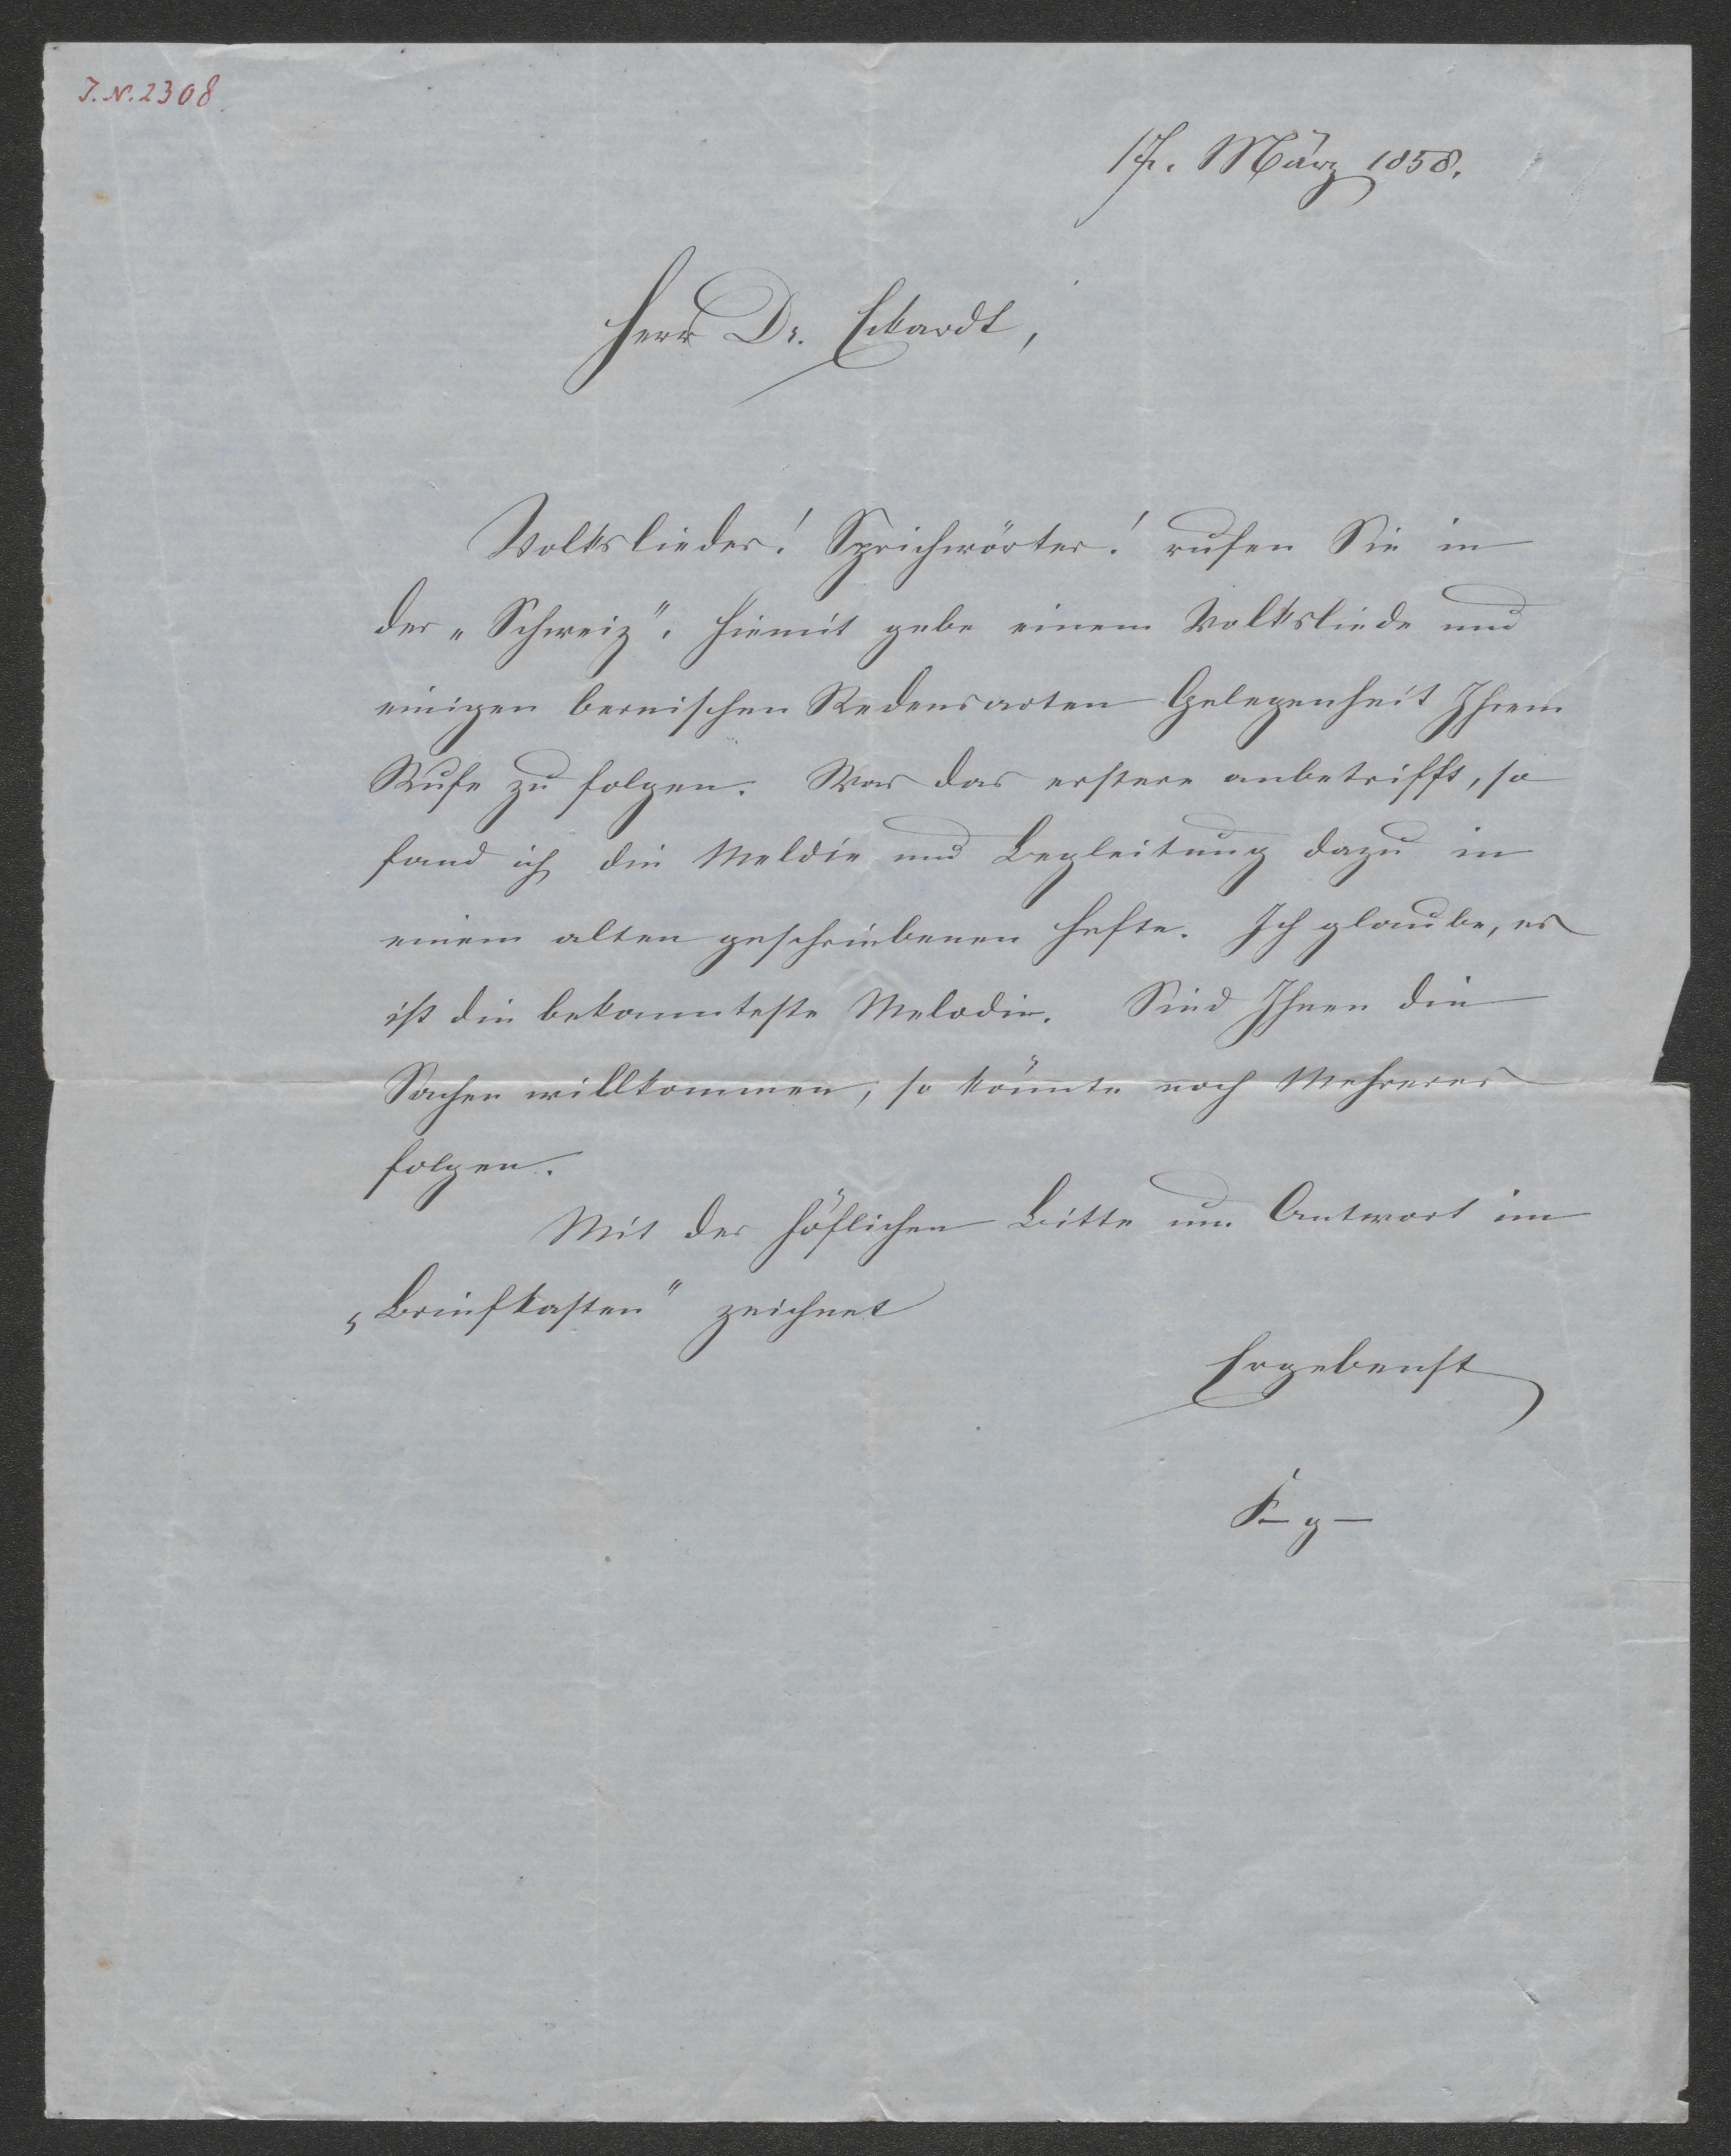 J.N. 2308
17. März 1858.
Herr Dr. Eckardt,
Volkslieder! Sprichwörter! rufen Sie in
der „Schweiz". Hiemit gebe einem Volksliede und
einigen bernischen Redensarten Gelegenheit Ihrem
Rufe zu folgen. Was das erstere anbetrifft, so
fand ich die Meldie und Begleitung dazu in
einem alten geschriebenen Hefte. Ich glaube, es
ist die bekannteste Melodie. Sind Ihnen die
Sachen willkommen, so könnte noch Mehreres
folgen.
Mit der höflichen Bitte um Antwort im
„Briefkasten" zeichnet
Ergebenst